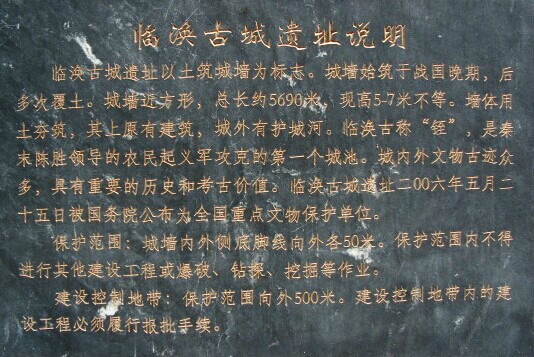 临涣古城遗址说明
临涣古城遗址以土筑城墙为标志。城墙始筑于战国晚期，后
多次覆土。城墙近方形，总长约5690米，现高5-7米不等。墙体用
土夯筑，其上原有建筑，城外有护城河。临涣古称“铚”，是秦
末陈胜领导的农民起义军攻克的第一个城池。城内外文物古迹众
多，具有重要的历史和考古价值。临涣古城遗址二00六年五月二
十五日被国务院公布为全国重点文物保护单位。
保护范围：城墙内外侧底脚线向外各50米。保护范围内不得
进行其他建设工程或爆破、钻探、挖掘等作业。
建设控制地带：保护范围向外500米。建设控制地带内的建
设工程必须履行报批手续。